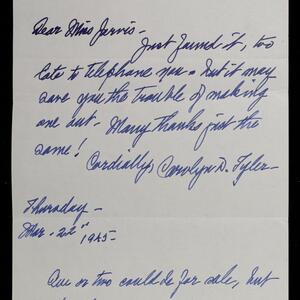 Dear Miss Jarvis -
Just found it, too
late to telephone you - but it may
save you the trouble of making
one out - Many thanks just the
same!
Cordially, Carolyn D. Tyler -
Thursday -
Mar - 22" 1945 -
One or two could do for sale, but